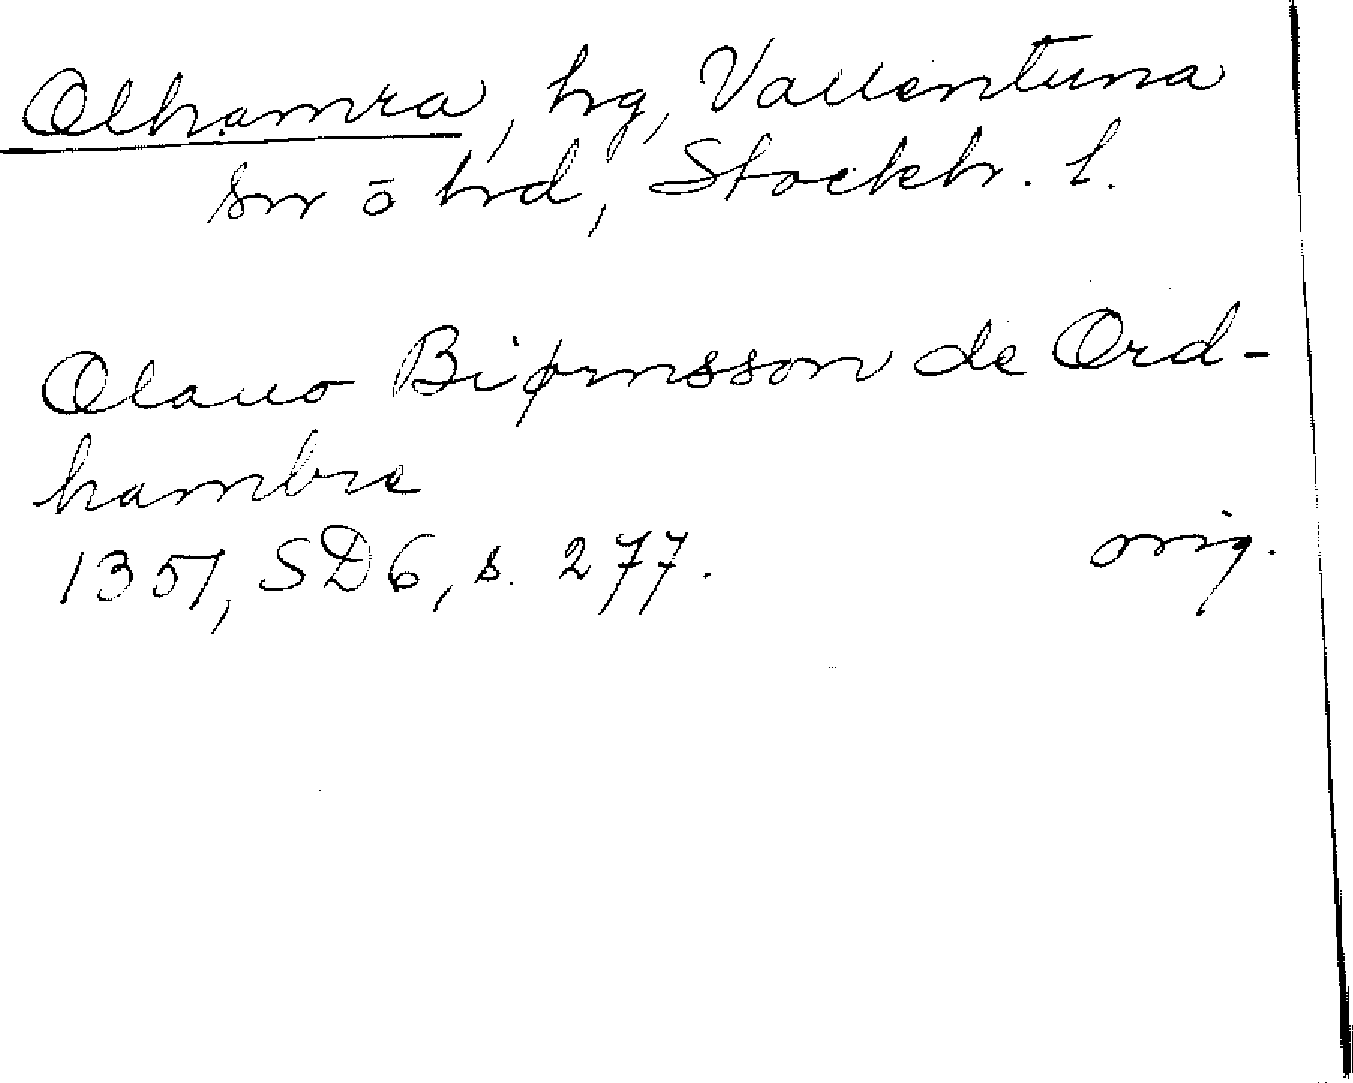 Olhamra, hg, Vallentuna
sn o hd, Stockh. l.
Olauo Biørnsson de Ord-
hambre
1351, SD6, s. 277. orig.